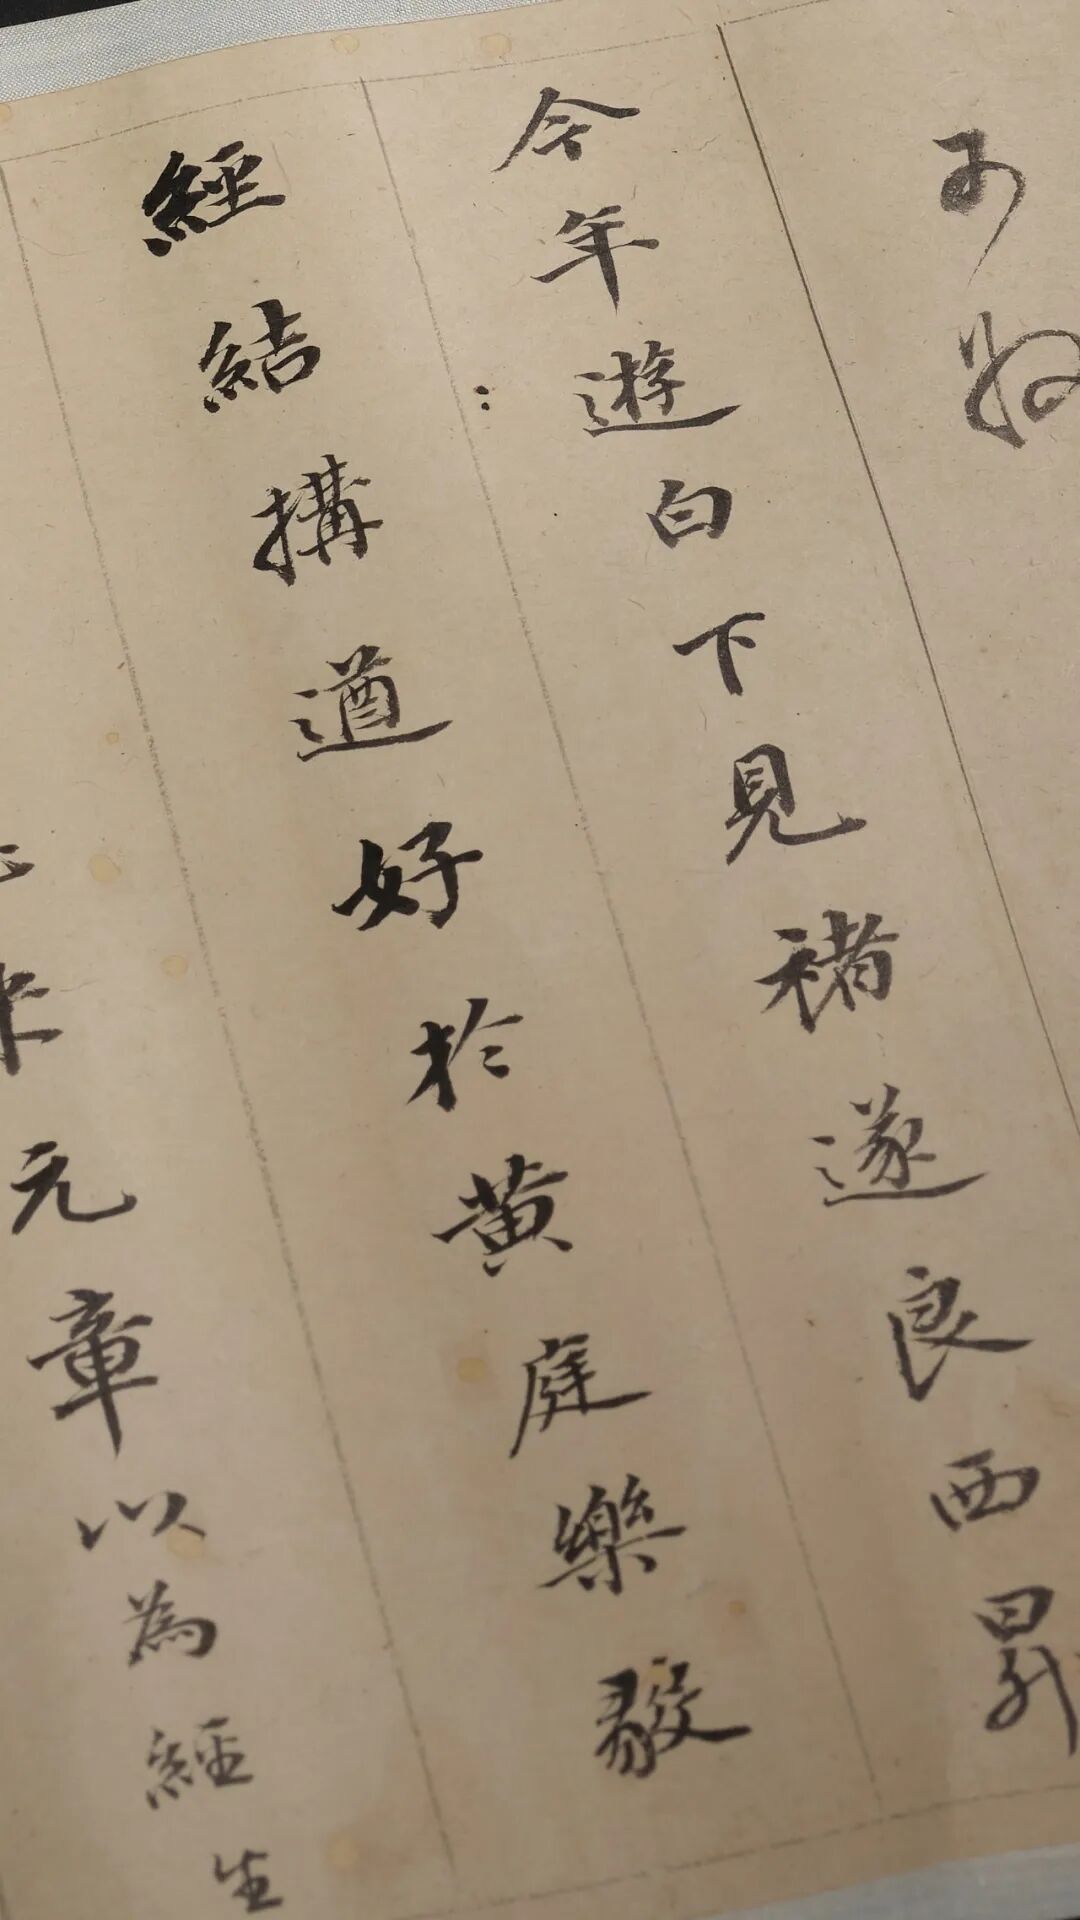 今年遊白下見褚遂良西昇
經結搆遒好於黄庭樂毅
元章以為經生